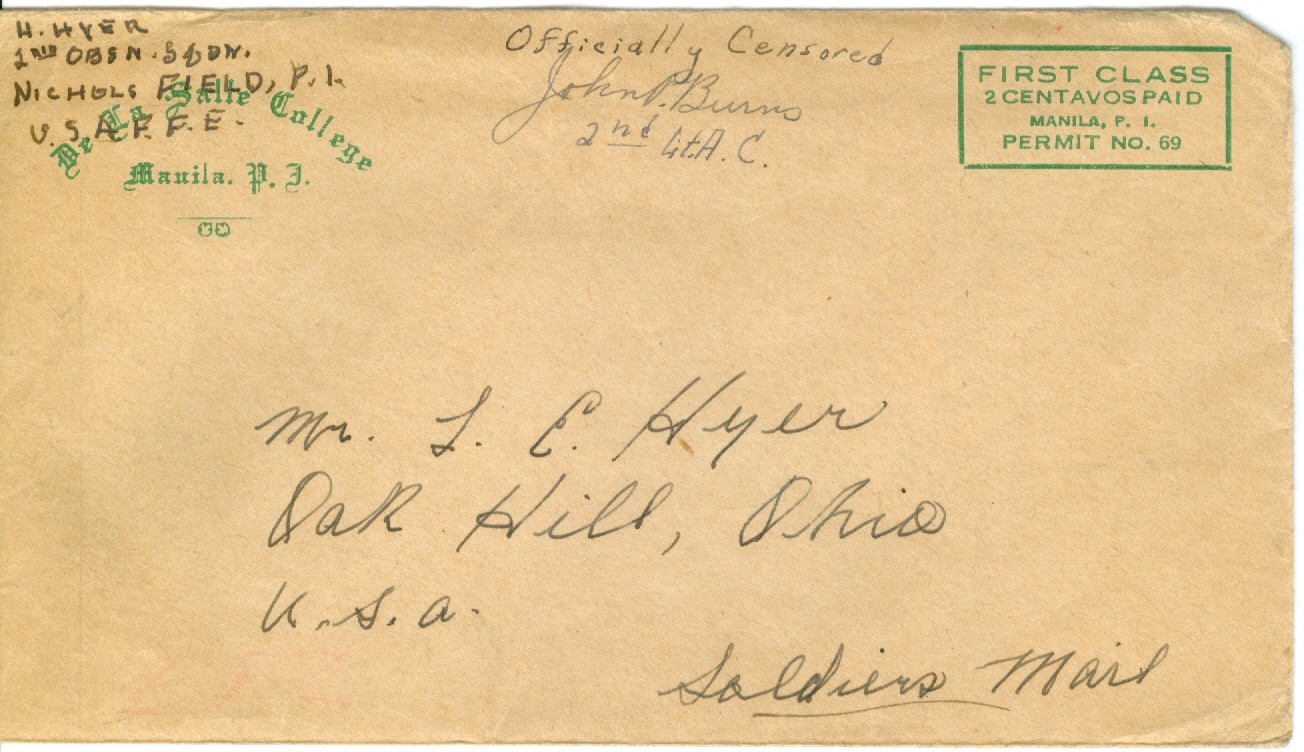 H. HYER
2ND OBSN. SQDN.
NICHOLS FIELD, P.I.
U.S.A.F.F.E.
De La Salle College
Manila. P. I.
Officially Censored
John P. Burns
2nd Lt. A. C.
FIRST CLASS
2 CENTAVOS PAID
MANILA, P. I.
PERMIT NO. 69
Mr. L. E. Hyer
Oak Hill, Ohio
U.S.A.
Soldiers Mail